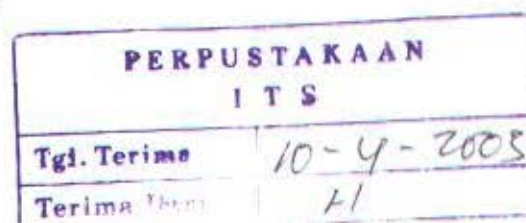 PERPUSTAKAAN
I T S
Tgl. Terima 10-4-2003
Terima H